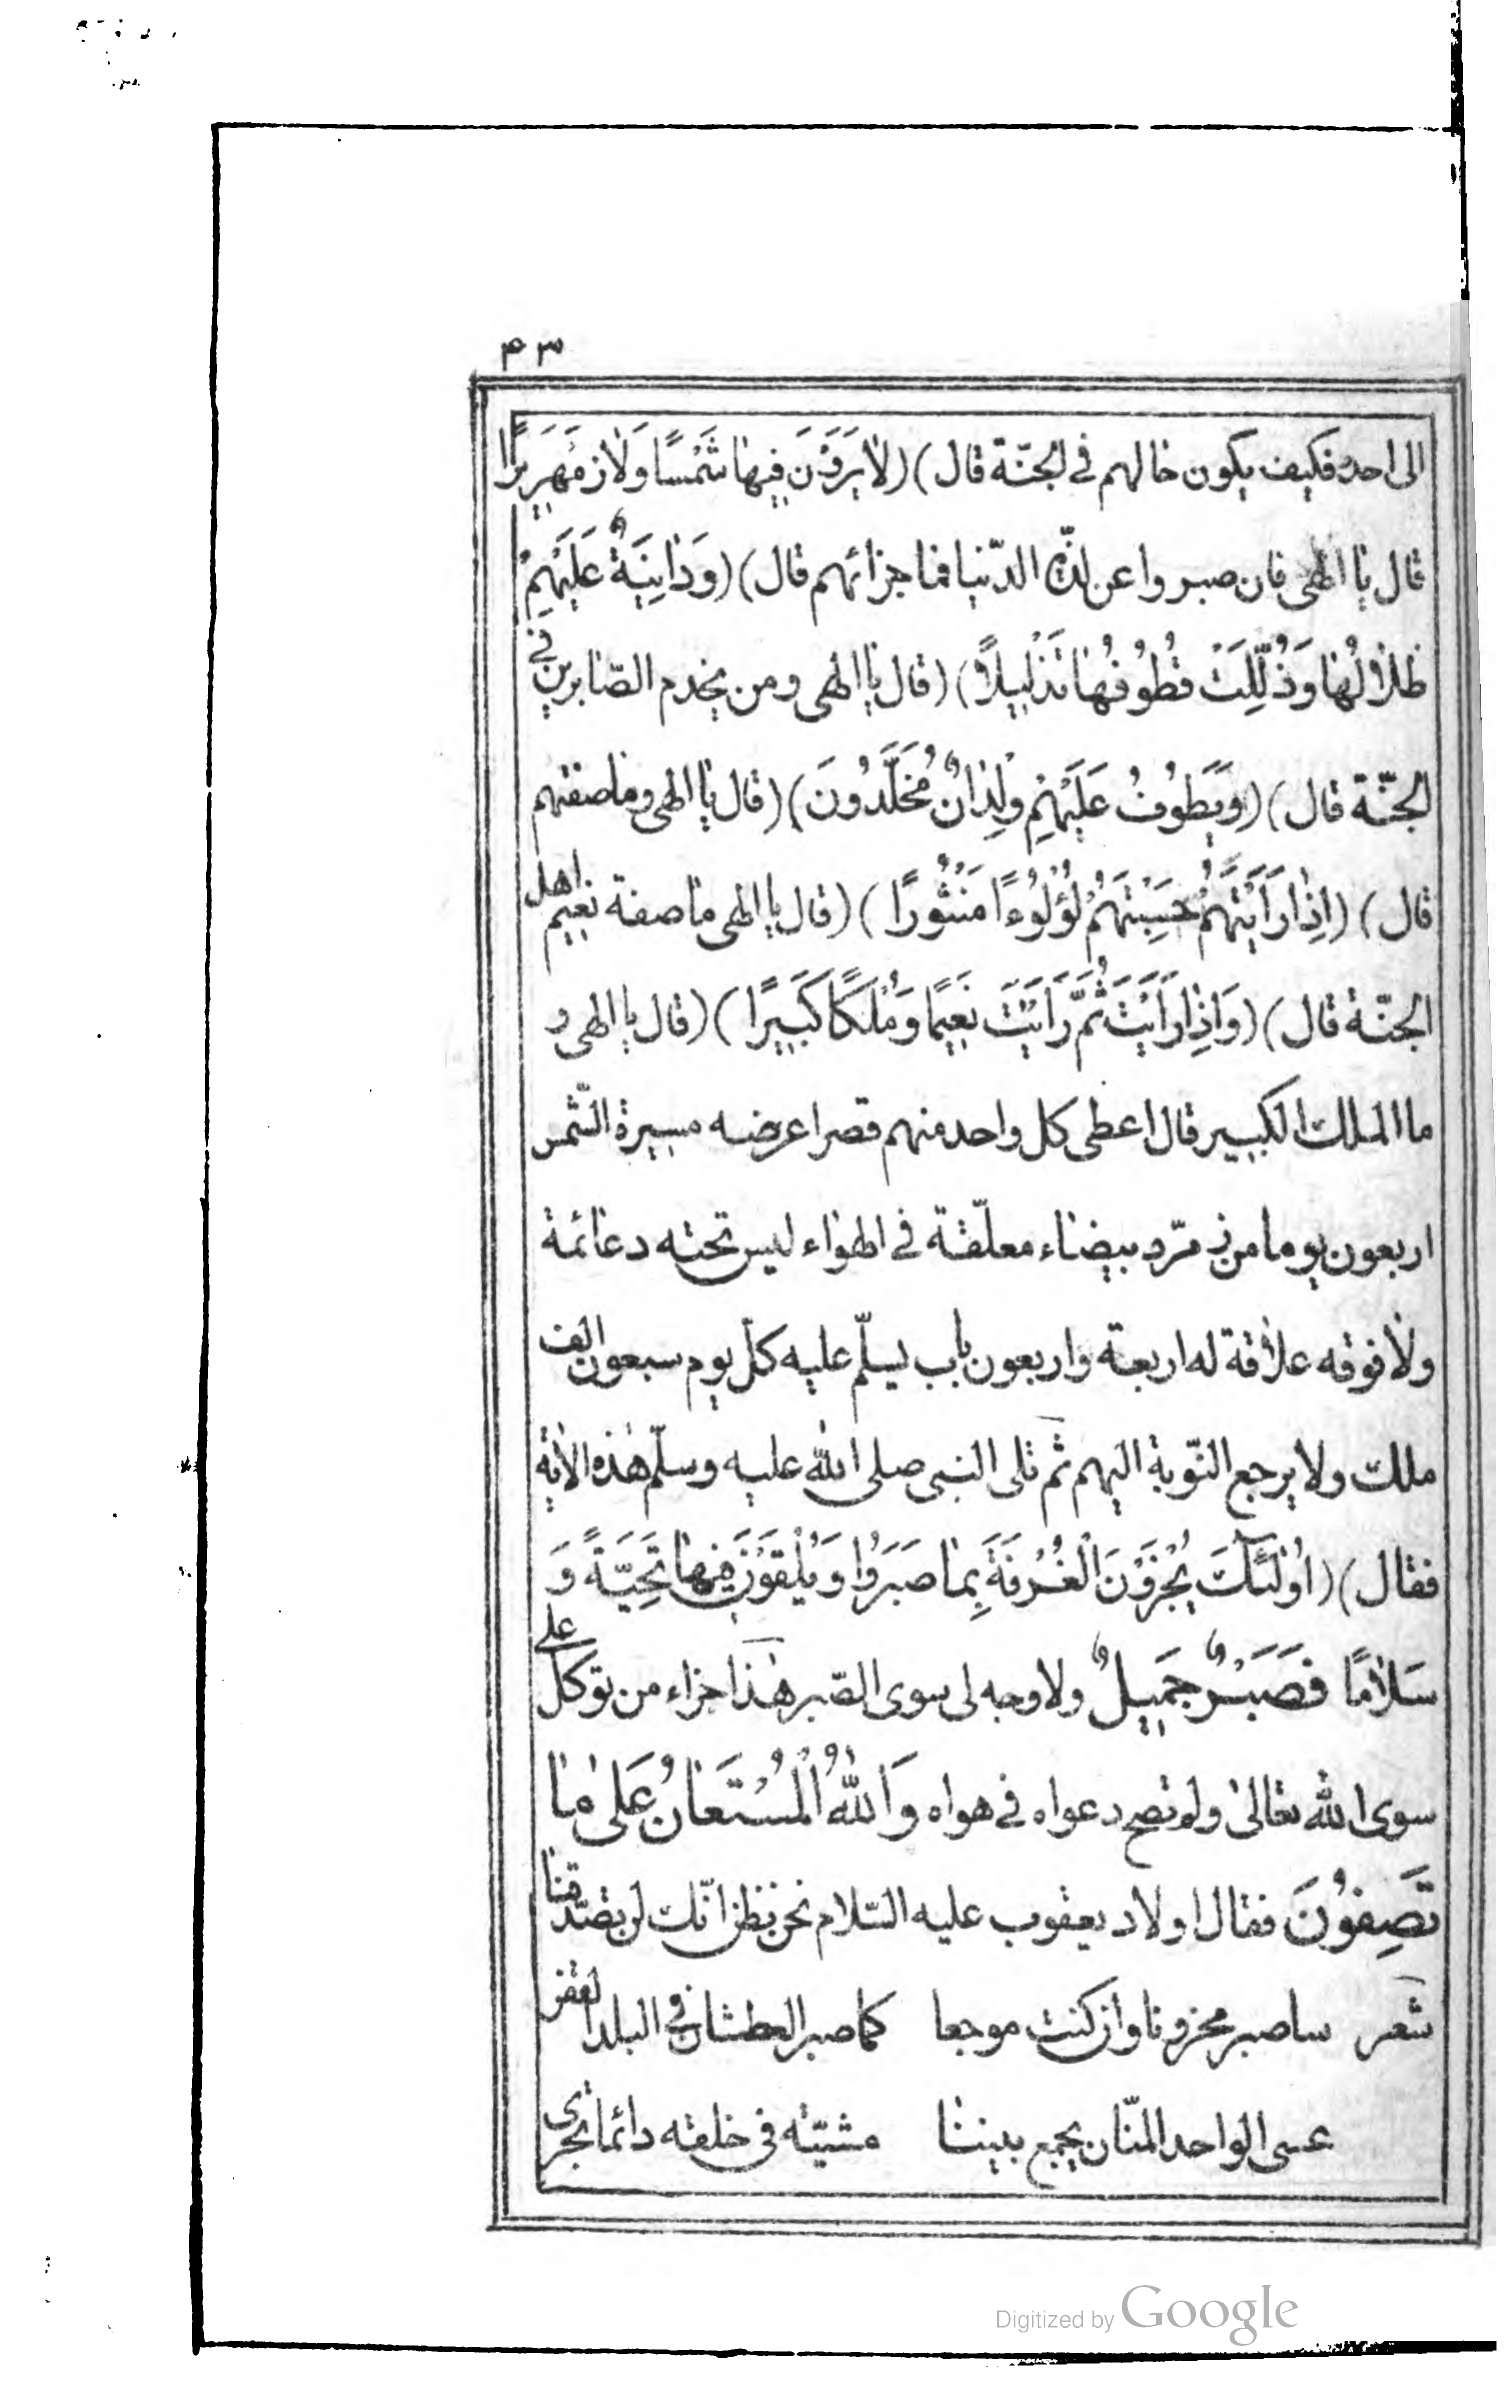 ٤٣
الى احد فكيف يكون حالهم فى الجنّة قال) (لَا يَرَوْنَ فِيهَا شَمْسًا وَلَا زَمْهَرِيرًا
قال يا الهى فان صبروا عن لذّة الدّنيا فما جزائهم قال) (وَدَانِيَةً عَلَيْهِمْ
ظِلَالُهَا وَذُلِّلَتْ قُطُوفُهَا تَذْلِيلًا) (قال يا الهى ومن يخدم الصّابرين فى
الجنّة قال) (وَيَطُوفُ عَلَيْهِمْ وِلْدَانٌ مُخَلَّدُونَ) (قال يا الهى وما صفتهم
قال) (اِذَا رَاَيْتَهُمْ حَسِبْتَهُمْ لُؤْلُوءًا مَنْثُورًا) (قال يا الهى ما صفة نعيم اهل
الجنّة قال) (وَاِذَا رَاَيْتَ ثَمَّ رَاَيْتَ نَعِيمًا وَمُلْكًا كَبِيرًا) (قال يا الهى و
ما الملك الكبير قال اعطى كل واحد منهم قصرا عرضه مسيرة الشّمس
اربعون يوما من زمرّد بيضاء معلّقة فى الهواء ليس تحته دعائمة
ولا فوقه علاقة له اربعة واربعون باب يسلّم عليه كلّ يوم سبعون الف
ملك ولا يرجع النّوبة اليهم ثم تلى النبى صلى الله عليه وسلّم هذه الاية
فقال) (اُولٰئِكَ يُجْزَوْنَ الْغُرْفَةَ بِمَا صَبَرُوا وَيُلَقَّوْنَ فِيهَا تَحِيَّةً وَ
سَلَامًا فَصَبْرٌ جَمِيلٌ ولا وجه لى سوى الصّبر هذا جزاء من توكل على
سوى الله تعالى ولم تصح دعواه فى هواه وَاللهُ الْمُسْتَعَانُ عَلٰى مَا
تَصِفُونَ فقال اولاد يعقوب عليه السّلام نحن نظن انّك لن تصدّقنا
شعر ساصبر محزونا وان كنت موجعا كما صبر العطشان فى البلد القفر
عسى الواحد المنّان يجمع بيننا مشيّته فى خلقه دائما تجرى
Digitized by Google